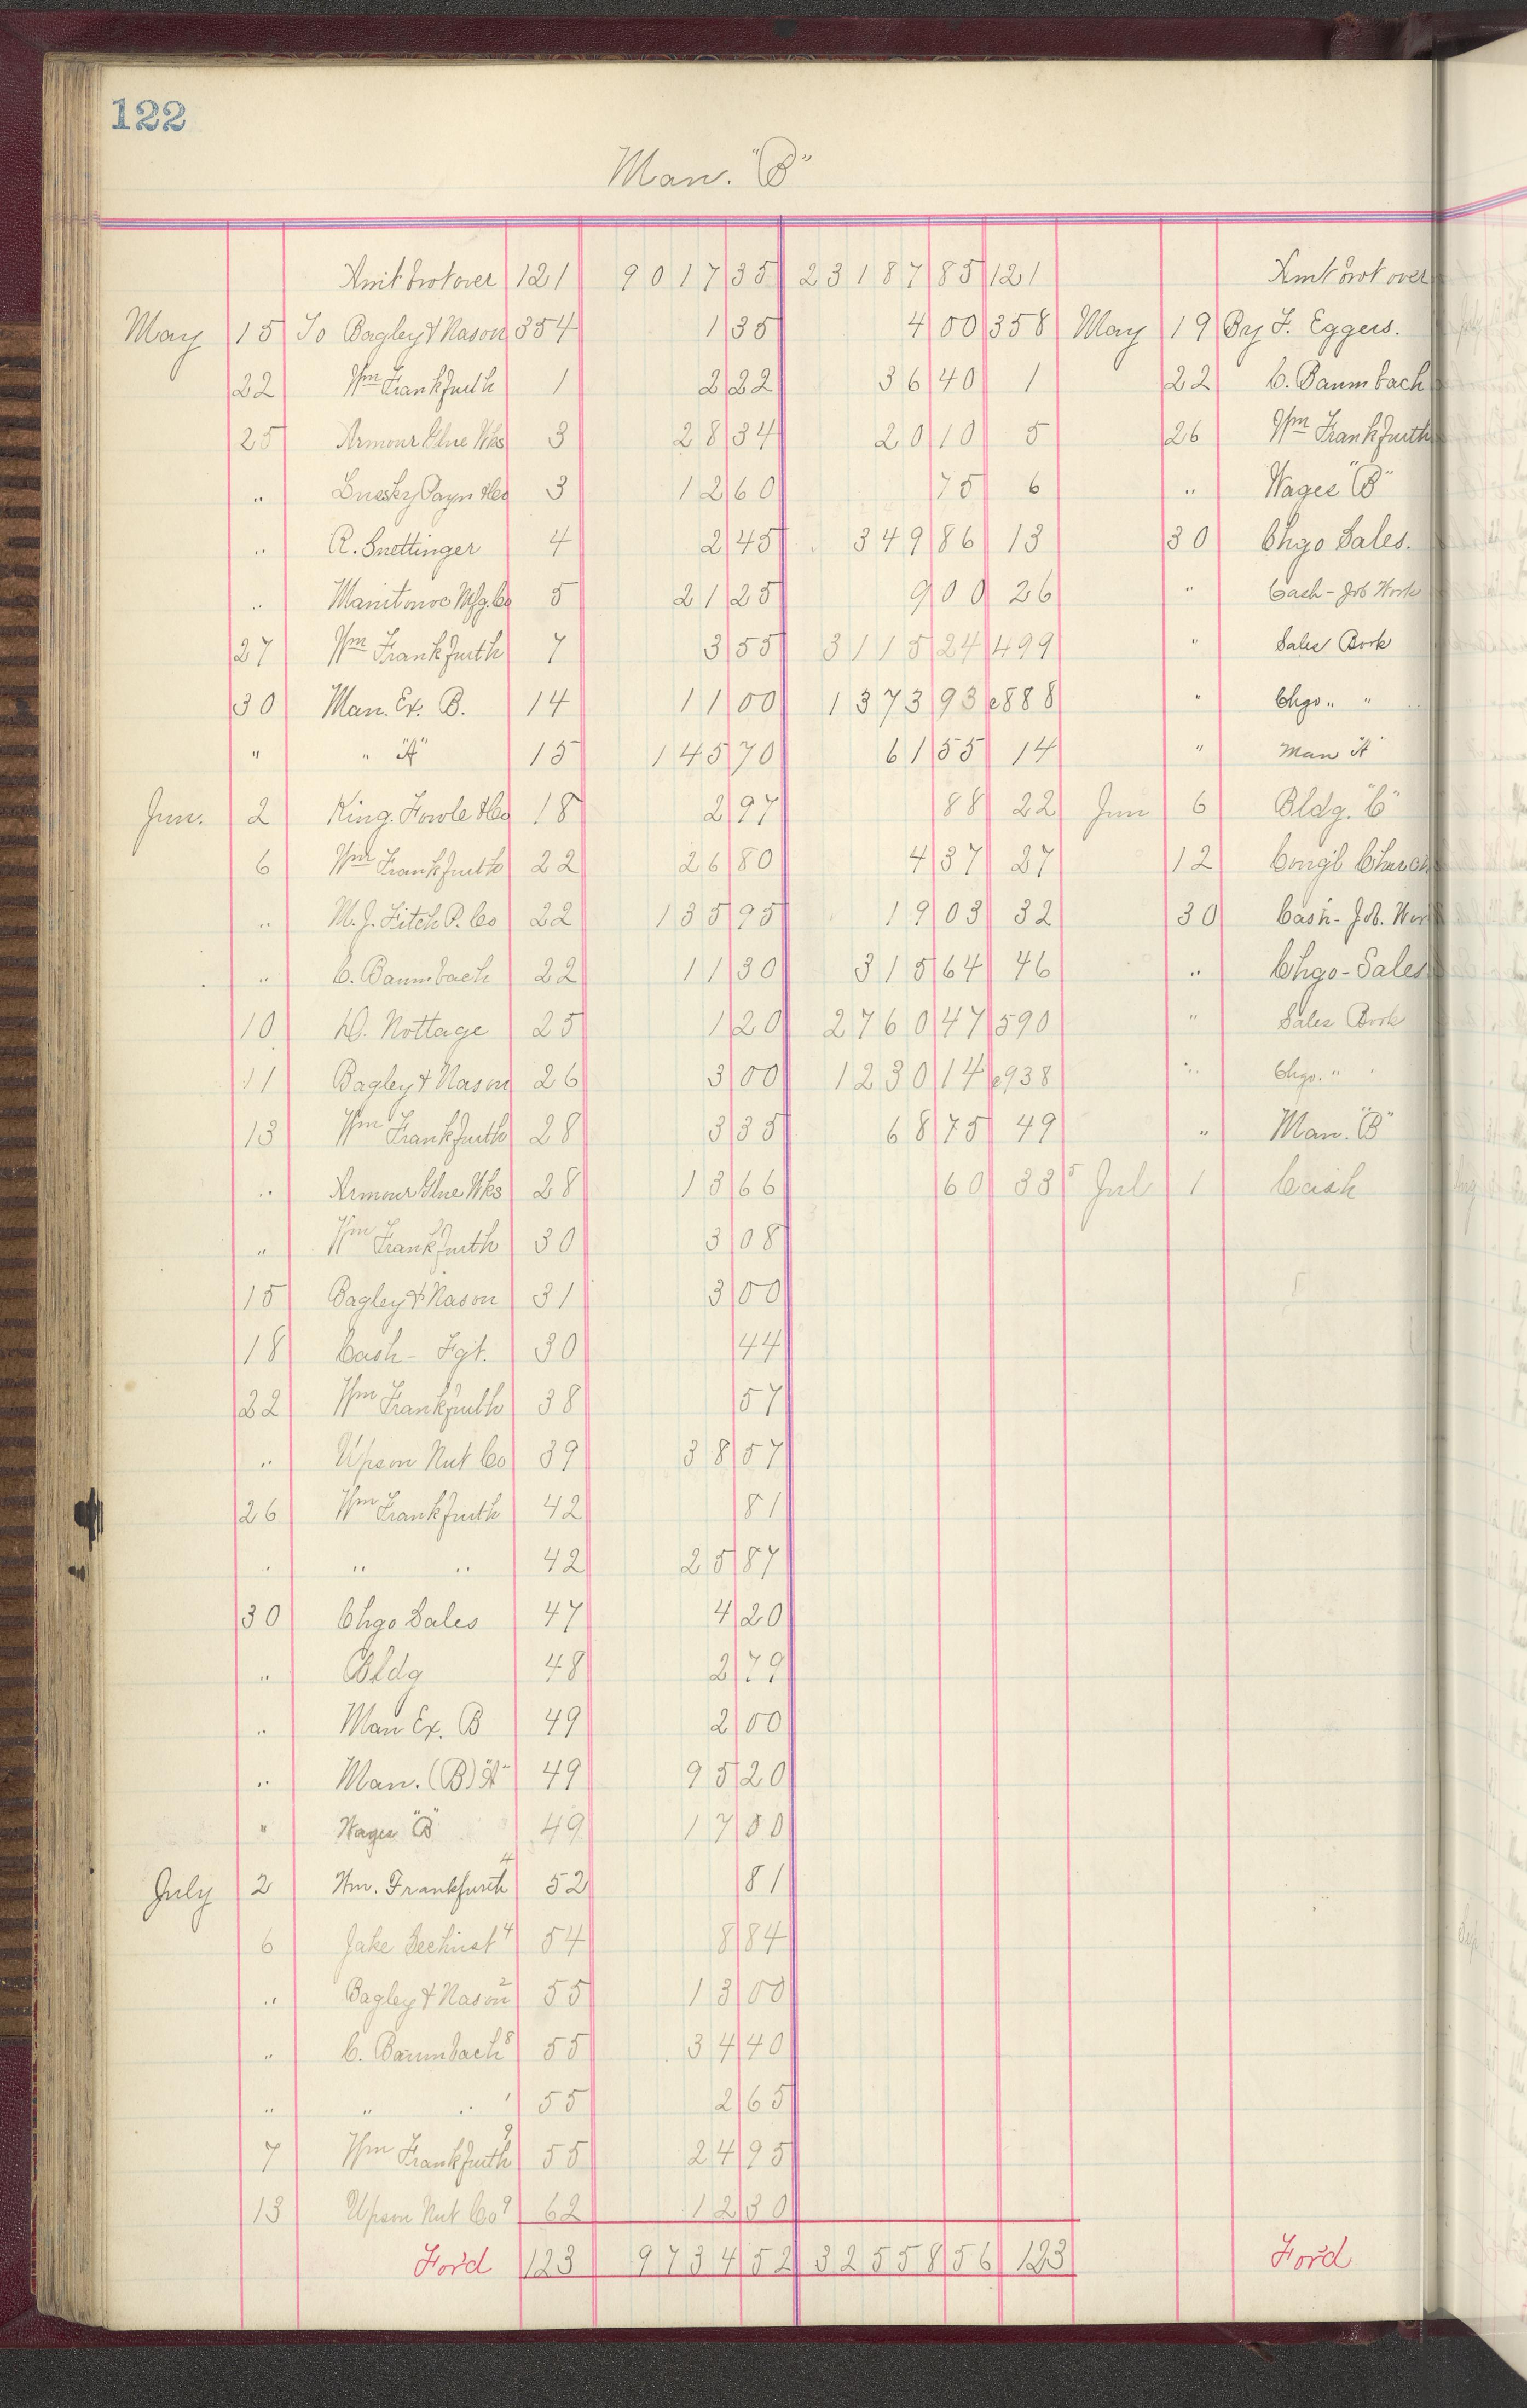 122
Man. "B"
Amt brot over 121 9017 35 23187 85 121 Amt brot over
May 15 To Bagley & Nason 354 1 35 4 00 358 May 19 By F. Eggers.
22 Wm Frankfurth 1 2 22 36 40 1 22 C. Baumbach
25 Armour Glue Wks 3 28 34 20 10 5 26 Wm Frankfurth
" Payn & Co 3 12 60 75 6 " Wages "B"
" R. Snettinger 4 2 45 349 86 13 30 Chgo Sales.
" Manitowoc Mfg. Co 5 21 25 9 00 26 " Cash - Job Work
27 Wm Frankfurth 7 3 55 3115 24 499 " Sales Book
30 Man. Ex. B. 14 11 00 1373 93 e888 " Chgo " "
" " "A" 15 145 70 61 55 14 " Man "A"
Jun. 2 King. Fowle & Co 18 2 97 88 22 Jun 6 Bldg. "C"
6 Wm Frankfurth 22 26 80 4 37 27 12 Congl Church
" M. J. Fitch P. Co 22 135 95 19 03 32 30 Cash - Job. Wor
" C. Baumbach 22 11 30 315 64 46 " Chgo - Sales
10 D. Nottage 25 1 20 2760 47 590 " Sales Book
11 Bagley & Nason 26 3 00 1230 14 e938 " Chgo. " "
13 Wm Frankfurth 28 3 35 68 75 49 " Man. "B"
" Armour Glue Wks 28 13 66 60 33 5 Jul 1 Cash
" Wm Frankfurth 30 3 08
15 Bagley & Nason 31 3 00
18 Cash - Fgt. 30 44
22 Wm Frankfurth 38 57
" Upson Nut Co 39 38 57
26 Wm Frankfurth 42 81
" " " 42 25 87
30 Chgo Sales 47 4 20
" Bldg 48 2 79
" Man Ex. B 49 2 00
" Man. (B) "A" 49 95 20
" Wages "B" 49 17 50
July 2 Wm. Frankfurth 4 52 81
6 Jake 4 54 8 84
" Bagley & Nason 2 55 13 00
" C. Baumbach 8 55 34 40
" " " 1 55 2 65
7 Wm Frankfurth 9 55 24 95
13 Upson Nut Co 9 62 12 30
For'd 123 9734 52 32558 56 123 For'd